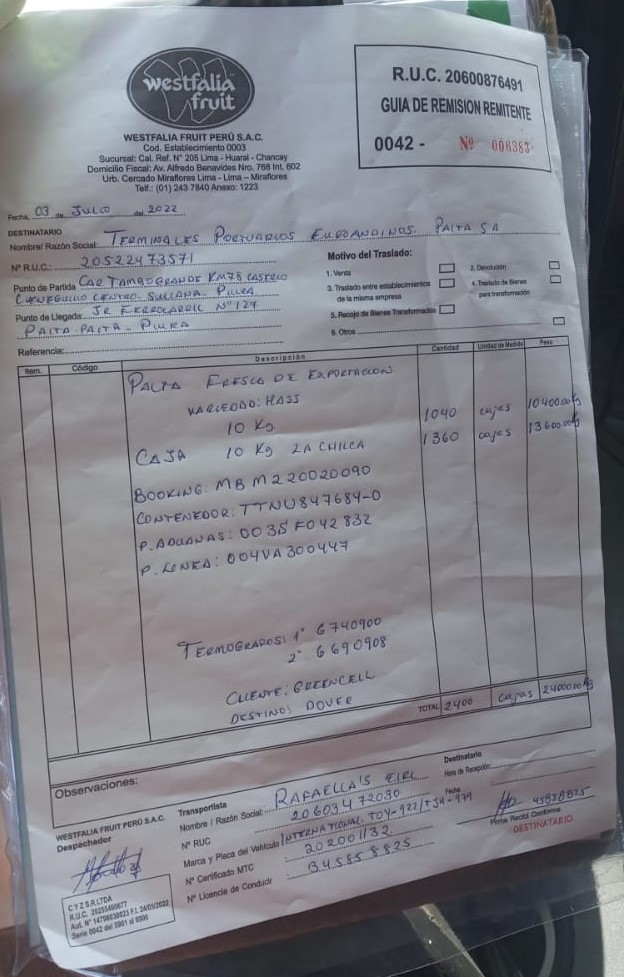 westfalia
fruit
WESTFALIA FRUIT PERÚ S.A.C.
Cod. Establecimiento 0003
Sucursal: Cal. Ref. N° 205 Lima - Huaral - Chancay
Domicilio Fiscal: Av. Alfredo Benavides Nro. 768 Int. 602
Urb. Cercado Miraflores Lima - Lima - Miraflores
Telf.: (01) 243 7840 Anexo: 1223
R.U.C. 20600876491
GUIA DE REMISION REMITENTE
0042 - Nº 008383
Fecha, 03 de JULIO del 2022
DESTINATARIO
Nombre/ Razón Social: TERMINALES PORTUARIOS EUROANDINOS PAITA SA
N° R.U.C.: 20522473571
Punto de Partida CAR TAMBOGRANDE KM78 CASERIO
CIENEGUILLO CENTRO. SULLANA. PIURA
Punto de Llegada: JR FERROCARRIL N°127
PAITA PAITA - PIURA
Motivo del Traslado:
1. Venta
2. Devolución
3. Traslado entre establecimientos
de la misma empresa
4. Traslado de Bienes
para transformación
5. Recojo de Bienes Transformados
6. Otros
Referencia:
Item. Código Descripción Cantidad Unidad de Medida Peso
PALTA FRESCA DE EXPORTACION
VARIEDAD: HASS
10 Kg 1040 cajas 10400.00 kg
CAJA 10 Kg LA CHILCA 1360 cajas 13600.00 kg
BOOKING: MBM220020090
CONTENEDOR: TTNU847684-0
P. ADUANAS: 0035F042832
P. LINEA: 004VA300447
TERMOGRAFOS: 1° 6740900
2° 6690908
CLIENTE: GREENCELL
DESTINO: DOVER
TOTAL 2400 cajas 24000.00 kg
Observaciones:
WESTFALIA FRUIT PERÚ S.A.C.
Despachador
Transportista
Nombre / Razón Social: RAFAELLA'S EIRL
N° RUC 20603472030
Marca y Placa del Vehículo INTERNATIONAL TOY-922/TJH-979
N° Certificado MTC 202001132
N° Licencia de Conducir B45858825
Destinatario
Hora de Recepción:
Fecha
45858825
Firma Recibí Conforme
DESTINATARIO
C Y Z S.R.LTDA
R.U.C. 20255460677
Serie 0042 del 5901 al 8900